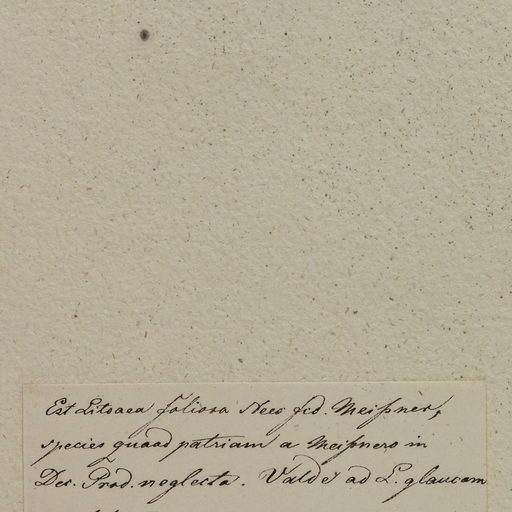 Est Litsaea foliosa Nees fid. Meißner,
species quoad patriam a Meißnero in
Dec. Prod. neglecta. Valde ad L. glaucam